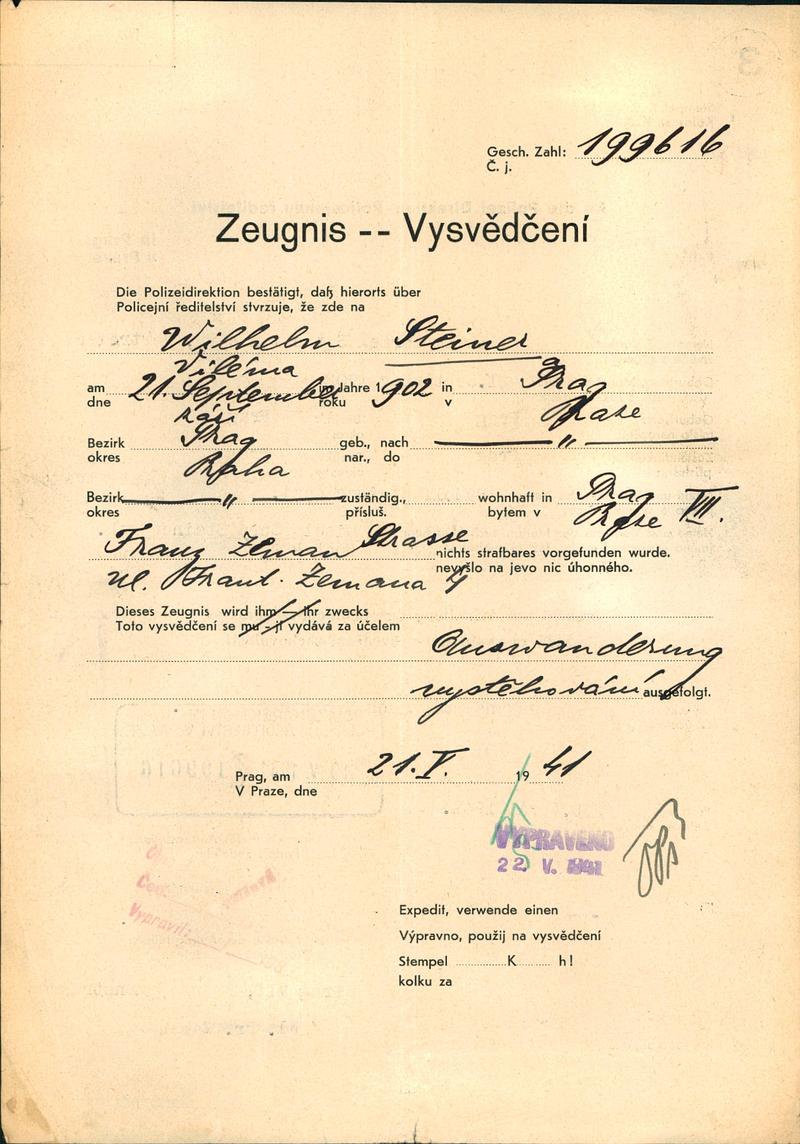 Gesch. Zahl: 199616
Č. j.
Zeugnis -- Vysvědčení
Die Polizeidirektion bestätigt, daß hierorts über
Policejní ředitelství stvrzuje, že zde na
Wilhelm Steiner
Viléma
am 21. September im Jahre 1902 in Prag
dne září roku v Praze
Bezirk Prag geb., nach — " —
okres Praha nar., do
Bezirk — " — zuständig., wohnhaft in Prag VII.
okres přísluš. bytem v Praze
Franz Zeman Strasse nichts strafbares vorgefunden wurde.
ul. Frant. Zemana 4 nevyšlo na jevo nic úhonného.
Dieses Zeugnis wird ihm - ihr zwecks
Toto vysvědčení se mu - jí vydává za účelem
Auswanderung
vystěhování ausgefolgt.
Prag, am 21. V. 1941
V Praze, dne
VYPRAVENO
22 V. 1941
Expedit, verwende einen
Výpravno, použij na vysvědčení
Stempel K h!
kolku za
Vypravil: